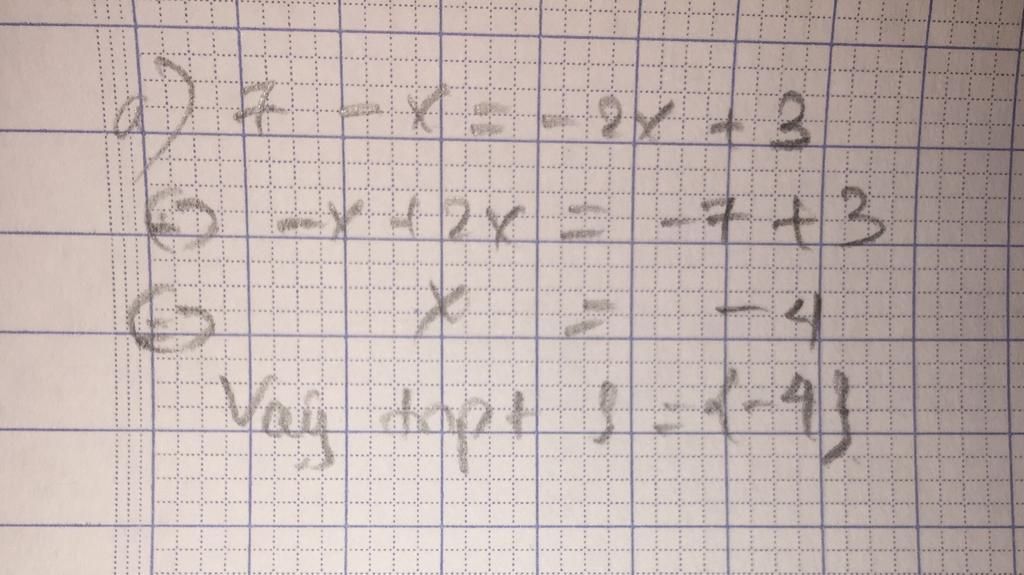 a) 7 - x = -2x + 3
⇔ -x + 2x = -7 + 3
⇔ x = -4
Vậy tnpt S = {-4}